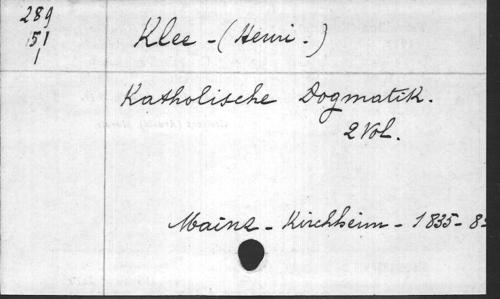 289
51
1
Klee - (Henri.)
Katholische Dogmatik.
2 Vol.
Mainz - Kirchheim - 1835-